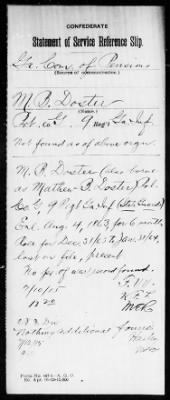 CONFEDERATE
Statement of Service Reference Slip.
Ga. Com. of Pensions
(Source of communication.)
M. B. Doster
(Name.)
Pvt. Co G. 9 Reg't Ga Inf
Not found as of above orgn.
M. B. Doster (also borne
as Mathew B Doster) Pvt.
Co G, 9 Regt Ga Inf (State Guards)
Enl. Aug. 4, 1863, for 6 months.
for Dec. 31/63 to Jan. 31/64,
last on file, present
No found.
7/10/15
Nothing additional found
7/12/15